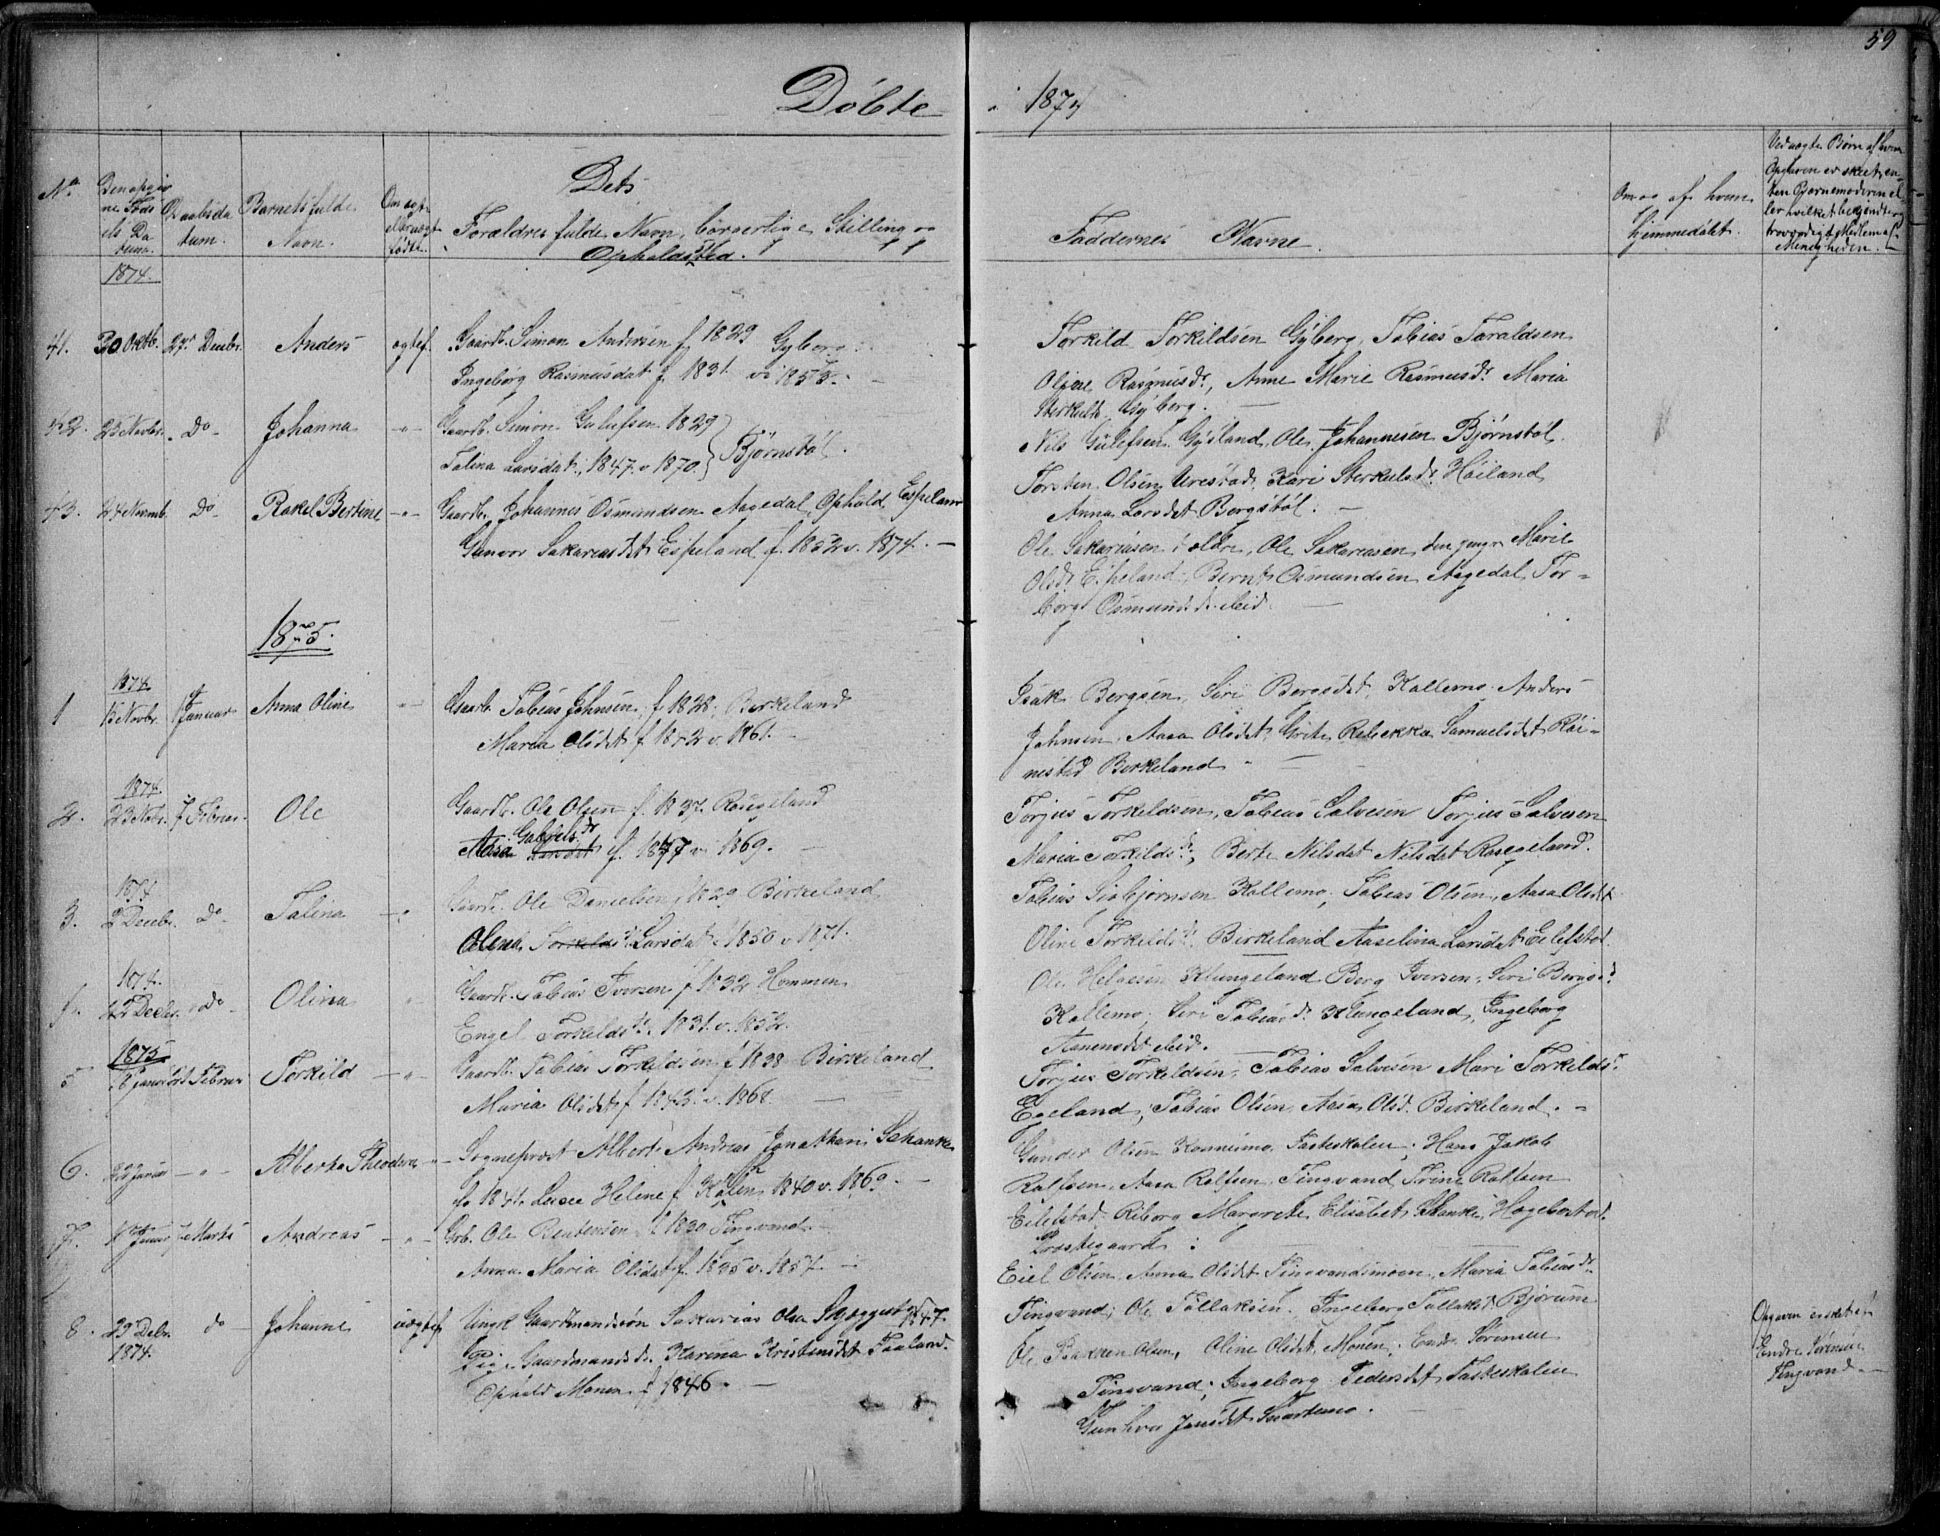 59
Døbte
i 1874
No
Den opgiv
ne Føds
els Da
tum.
Daabsda
tum.
Barnets fulde
Navn.
Om ægte
eller uægte
fødte.
Dets
Forældres fulde Navn, borgerlige Stilling og
Opholdssted.
Faddernes Navne.
Om og af hvem
hjemmedøbt.
Ved uægte Børn af hvem
Opgaven er skeet, en-
ten Gjordemoderen el-
ler hvilket bekjendt og
troværdigt Medlem af
Menigheden.
1874.
41. 30 Oktb. 27 Decbr. Anders ægtef. Gaardb. Simon Andersen f 1829 Gyberg
Ingeborg Rasmusdat f 1831 vi 1853.
Torkild Torkildsen Gyberg, Tobias Taraldsen
Rasmusdr, Anne Marie Rasmusdr Maria
Gyberg.
42. 23 Novbr. do Johanna -"- Gaardb. Simon Gulufsen 1829
Talina Larsdat, 1847. v 1870. } Bjørnstøl.
Nils Gulefsen Gysland, Ole Johannesen Bjørnstøl.
Torsten Olsen Urestad, Kari Sterkulsdr Høiland
Anna Larsdet Bergstøl.
43. 24 Novmb. do Rakel Bertine -"- Gaardb. Johannes Osmundsen Aagedal, Ophold Espeland
Gunvor Sakariasdet Espeland f. 1852 v. 1874.
Ole Sakariasen d ældre, Ole Sakariasen den yngr Marie
Olsdr Espeland, Bernt Osmundsen Aagedal, Tor-
borg Osmundsdr ibid.
1875.
1874.
1 15 Novbr. 1 Januar Anna Oline -"- Gaardb. Tobias Johnsen, f 1828, Birkeland
Maria Olsdet f 1842 v. 1861.
Isak Bergsen, Siri Bergsdet, Kallemo. Anders
Johnsen, Aasa Olsdet, Rebekka Samuelsdet Røi-
nestad Birkeland
1874.
2. 23 Nvbr. 7 Februar. Ole Gaardb. Ole Olsen f. 1837. Røiseland
Aasa Gabrielsdr f. 1847 v. 1869.
Torjus Torkeldsen, Tobias Salvesen Torjus Salvesen
Maria Torkildsdr, Berte Nilsdat Nilsdat
1874
3. 2 Decbr. do Talina -"- Gaardb. Ole Danielsen, 1829 Birkeland
Olena Torkildsdr Larsdat 1850 v 1871.
Tobias Sigbjørnsen Kallemo, Tobias Olsen, Aasa Olsdet
Oline Torkildsdr Birkeland Aaselina Larsdat Eilefstad
1874.
4. 22 Decbr. do Olina " Gaardb. Tobias Iversen f 1832 Hommen
Engel Torkildsdr. 1831. v. 1852.
Ole Helgesen Klungeland Berg Iversen, Siri Bergsd.
Kallemo, Siri Tobiasdr Klungeland, Ingeborg
Aanensdet ibid.
1875
5 Januar Februar Torkild -"- Gaardb. Tobias Torkildsen f 1838 Birkeland
Maria Olsdet f 1843. v. 1868.
Torjus Torkeldsen, Tobias Salvesen Mari Torkeldsdr
Egeland, Tobias Olsen, Aasa Olsd. Birkeland.
6. 22 Januar -"- Alberta Theodora -"- Sogneprest Albert Andreas Jonathan Schanke
f. 1841. Helene f. 1840 v. 1869.
Gunder Olsen Konsmo, Hans Jakob
Rolfsen, Aasa Rolfsen, Tingvand Trine Rolfsen
Eilefstad, Margrete Elisabet Schanke, Hægebostad
Prestegaard.
7. Januar Marts Andreas -"- Grb. Ole Bentsensen f. 1830 Tingvand.
Anna Maria Olsdat f. 1835 v. 1857.
Eiel Olsen, Anna Olsdet Tingvandsmoen, Maria Tobiasdr.
Tingvand, Ole Tollaksen. Ingeborg Tollaksd. Bjørum
8. 29 Debr.
1874. do Johanne uægtef. Ungk. Gaardmandssøn Sakarias Olsen Skeggestad 1847.
Pige, Gaardmandsdr. Karina Kristensdet Faaland.
Ophold Monen. f 1846.
Ole Bakken Olsen, Oline Olsdet, Monen, Endr. Sørensen
Tingvand, Ingeborg Pedersdet
Gunhvor Jensdet Snartemo.
Opgaven er sket af
Endre Sørensen
Tingvand.